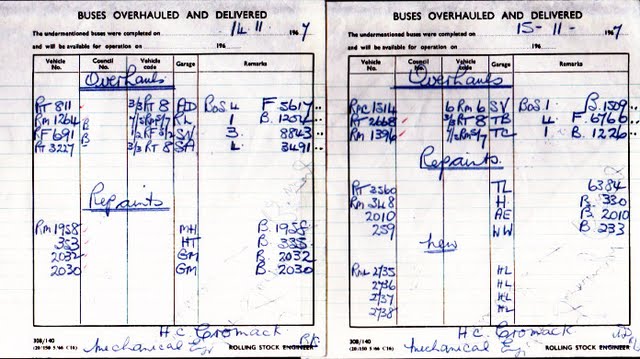 BUSES OVERHAULED AND DELIVERED
The undermentioned buses were completed on 14.11 196 7
and will be available for operation on 196
Vehicle No. Council No. Vehicle code Garage Remarks
Overhauls
RT 811 3/3 RT 8 AD BoS 4 F 5617
RM 1264 B RL 1 B. 1252
RF 691 B SV 3. 8843
RT 3227 3/3 RT 8 SA 4. 3491
Repaints
RM 1958 MH B. 1958
353 HT B. 335
2032 GM B. 2032
2030 GM B. 2030
H.C. Cromack
308/140
Mechanical Eng ROLLING STOCK ENGINEER
BUSES OVERHAULED AND DELIVERED
The undermentioned buses were completed on 15-11- 196 7
and will be available for operation on 196
Vehicle No. Council No. Vehicle code Garage Remarks
Overhauls
RMC 1514 6 RM 6 SV BoS 1 B. 1509
RT 2668 3/3 RT 8 TB 4. F. 6766
RM 1396 TC 1. B. 1226
Repaints
RT 3560 TL 6384
RM 348 H. B. 330
2010 AE B. 2010
259 WW B. 233
New
RML 2735 HL
2736 HL
2737 HL
2738 HL
H.C. Cromack
308/140
Mechanical Eng ROLLING STOCK ENGINEER